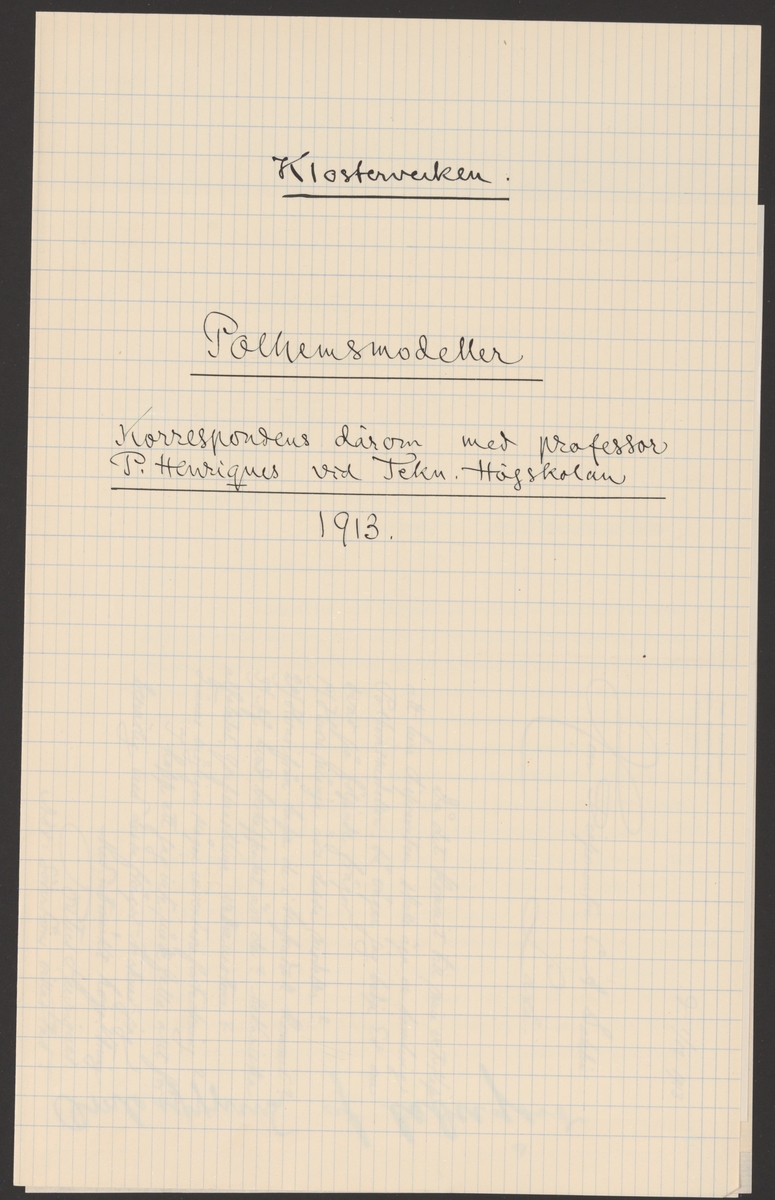 Klosterverken.
Polhemsmodeller
Korrespondens därom med professor
P. Henriques vid Tekn. Högskolan
1913.